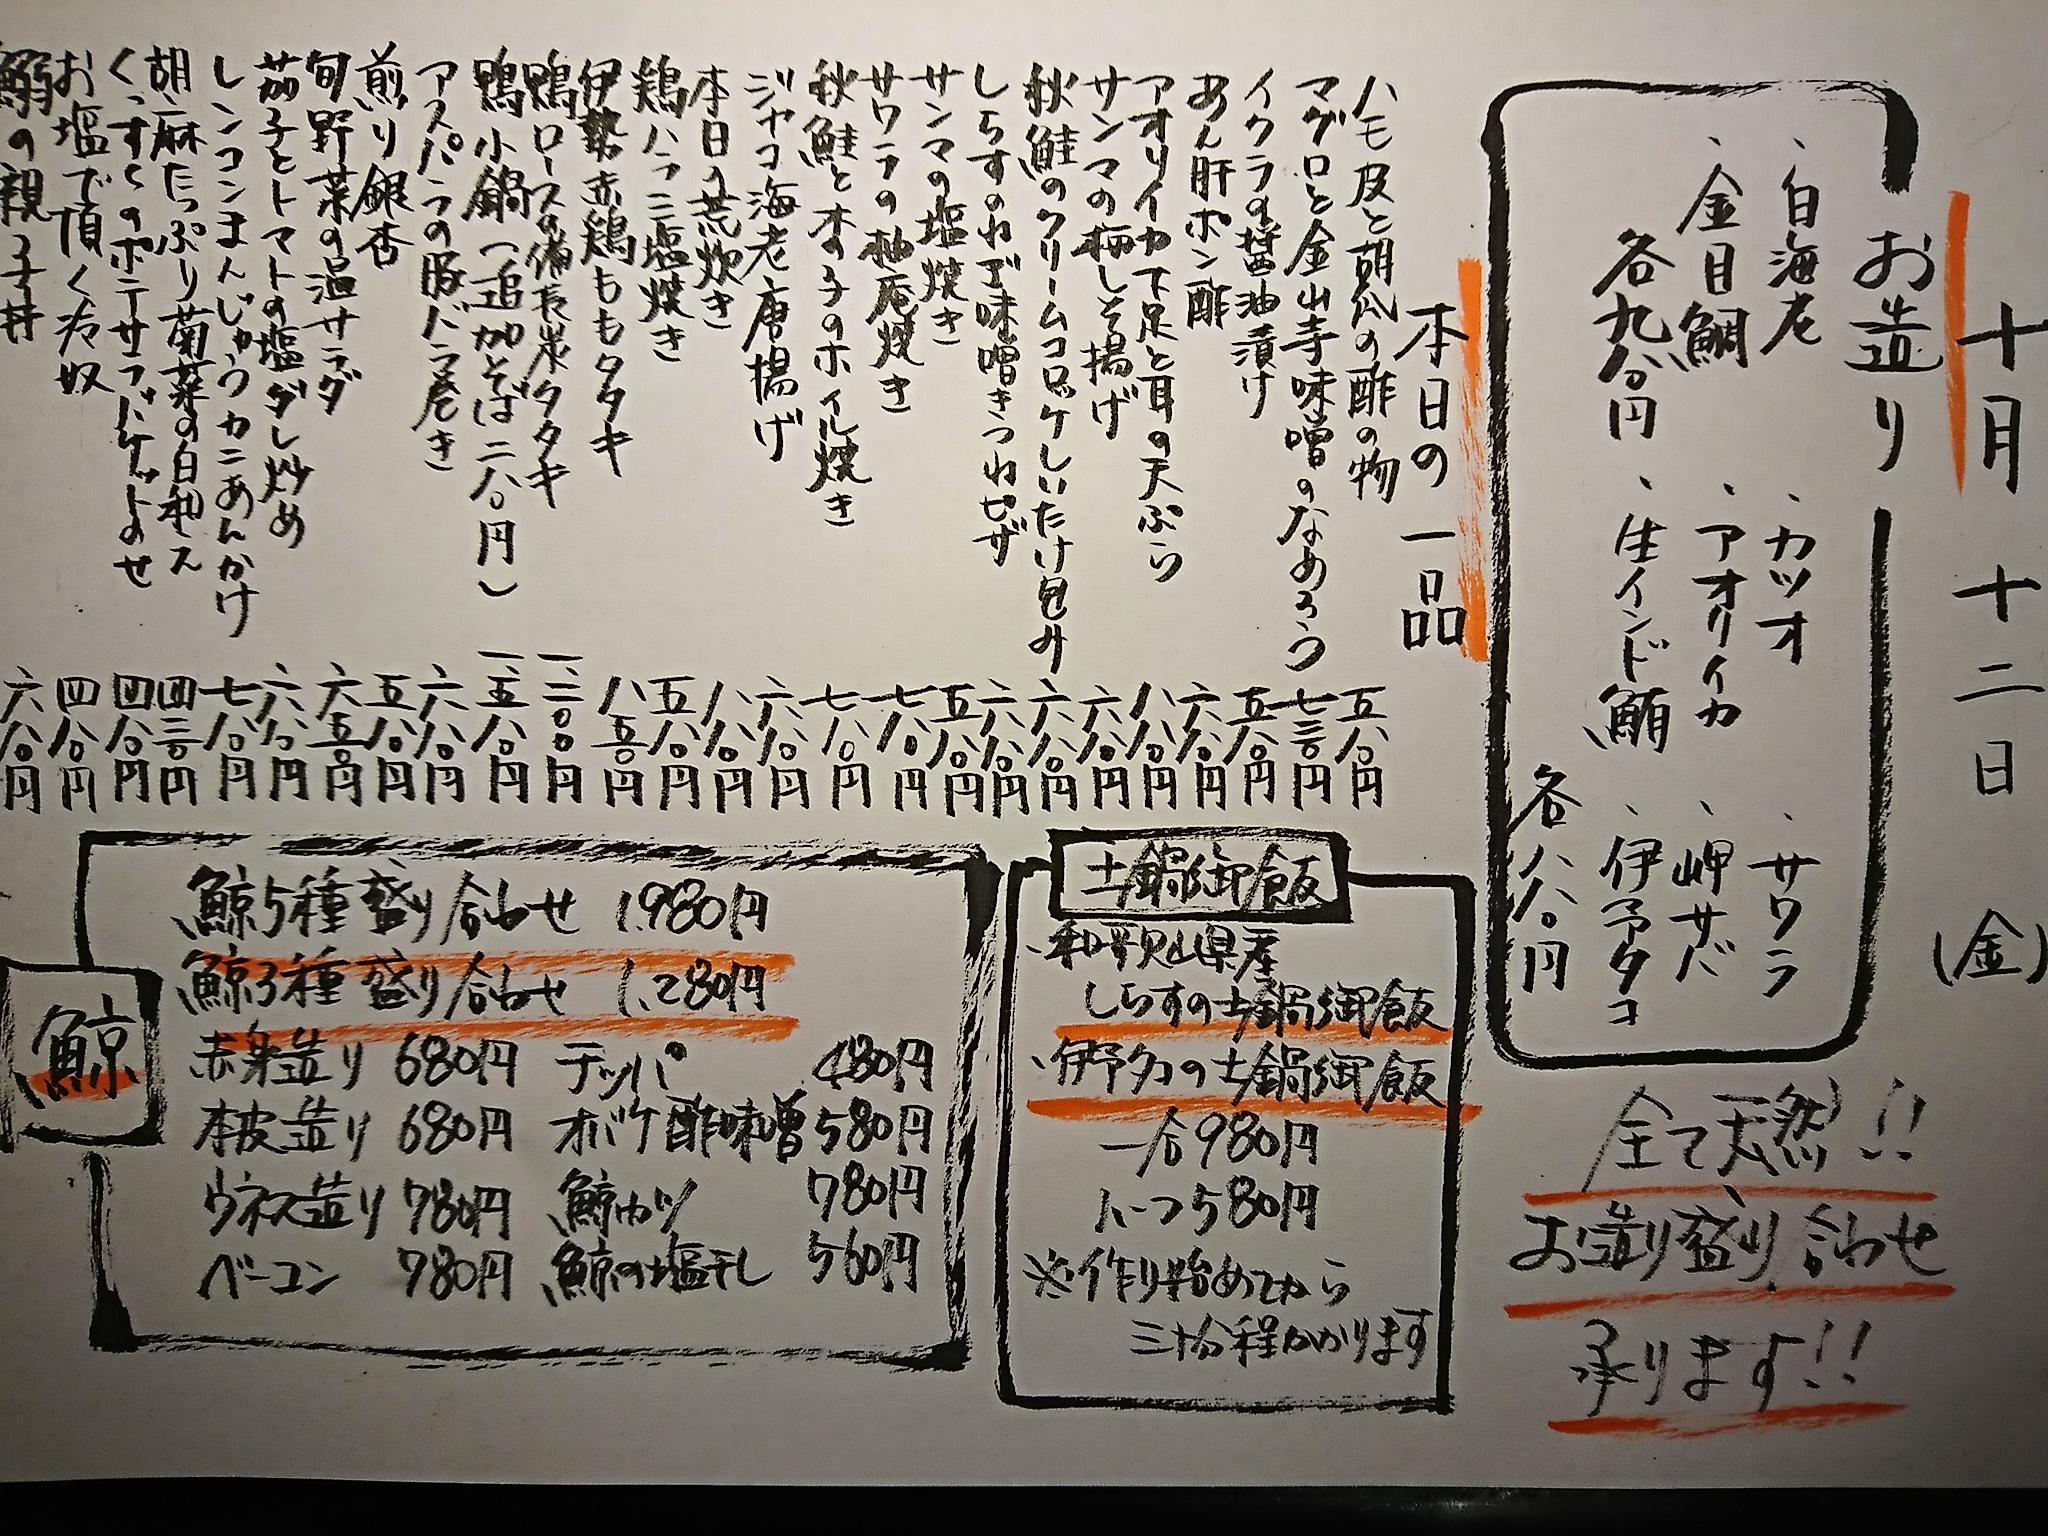 十月十二日(金)
お造り
、白海老
、金目鯛
各九八〇円
、カツオ
、アオリイカ
、生インド鮪
、サワラ
、岬サバ
、伊予タコ
各八八〇円
全て天然!!
お造り盛り合わせ
承ります!!
本日の一品
ハモ皮と胡瓜の酢の物 五八〇円
マグロと金山寺味噌のなめろう 七三〇円
イクラの醤油漬け 五八〇円
あん肝ポン酢 六八〇円
アオリイカ下足と耳の天ぷら 八八〇円
サンマの梅しそ揚げ 六八〇円
秋鮭のクリームコロッケしいたけ包み 六八〇円
しらすのねぎ味噌きつねピザ 六八〇円
サンマの塩焼き 五八〇円
サワラの柚庵焼き 七八〇円
秋鮭と木の子のホイル焼き 七八〇円
ジャコ海老唐揚げ 六八〇円
本日の荒炊き 八八〇円
鶏ハラミ塩焼き 五八〇円
伊勢赤鶏ももタタキ 八五〇円
鴨ロースの備長炭タタキ 一、二〇〇円
鴨小鍋(追加そば二八〇円) 一、五八〇円
アスパラの豚バラ巻き 六八〇円
煎り銀杏 五八〇円
旬野菜の温サラダ 六五〇円
茄子とトマトの塩ダレ炒め 六八〇円
レンコンまんじゅうカニあんかけ 七八〇円
胡麻たっぷり菊菜の白和え 四三〇円
くんすくのポテサラバケットのせ 四八〇円
お塩で頂く冷奴 四八〇円
鰯の親子丼 六八〇円
土鍋御飯
、和歌山県産
しらすの土鍋御飯
、伊予タコの土鍋御飯
一合980円
ハーフ580円
※作り始めてから
三十分程かかります
鯨
鯨5種盛り合わせ 1,980円
鯨3種盛り合わせ 1,280円
赤身造り 680円 テッパ 480円
本皮造り 680円 オバケ酢味噌 580円
ウネス造り 780円 鯨カツ 780円
ベーコン 780円 鯨の塩干し 560円